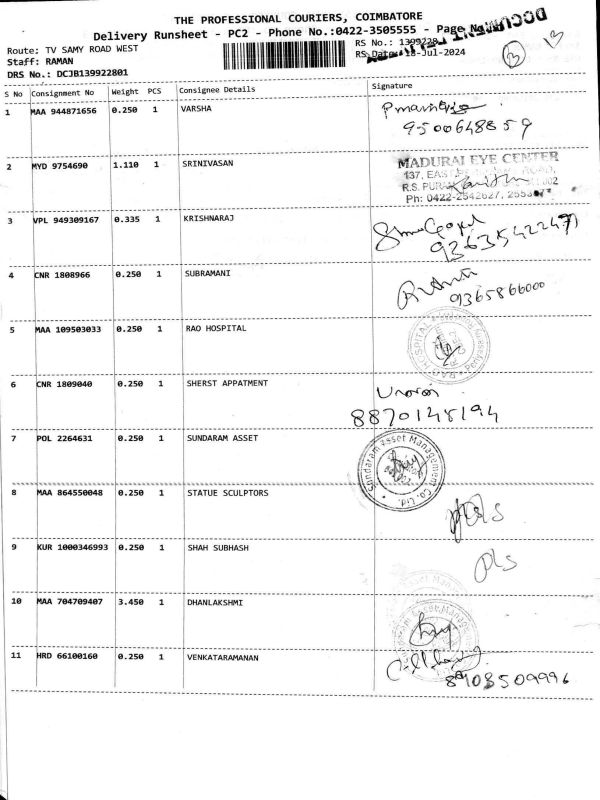 THE PROFESSIONAL COURIERS, COIMBATORE
Delivery Runsheet - PC2 - Phone No.:0422-3505555 - Page No
DOCUMENT
Route: TV SAMY ROAD WEST
RS No.: 1399228
Staff: RAMAN
RS Date: 18-Jul-2024
DRS No.: DCJB139922801
S No Consignment No Weight PCS Consignee Details Signature
1 MAA 944871656 0.250 1 VARSHA
9500648859
2 MYD 9754690 1.110 1 SRINIVASAN
MADURAI EYE CENTER
137, EAST ROAD,
R.S. PURAM
Ph: 0422-2542627,
3 VPL 949309167 0.335 1 KRISHNARAJ
4 CNR 1808966 0.250 1 SUBRAMANI
9365866000
5 MAA 109503033 0.250 1 RAO HOSPITAL
RAO HOSPITAL
6 CNR 1809040 0.250 1 SHERST APPATMENT
8870148194
7 POL 2264631 0.250 1 SUNDARAM ASSET
Sundaram Asset Management Co. Ltd.
8 MAA 864550048 0.250 1 STATUE SCULPTORS
9 KUR 1000346993 0.250 1 SHAH SUBHASH
10 MAA 704709407 3.450 1 DHANLAKSHMI
11 HRD 66100160 0.250 1 VENKATARAMANAN
8903509996